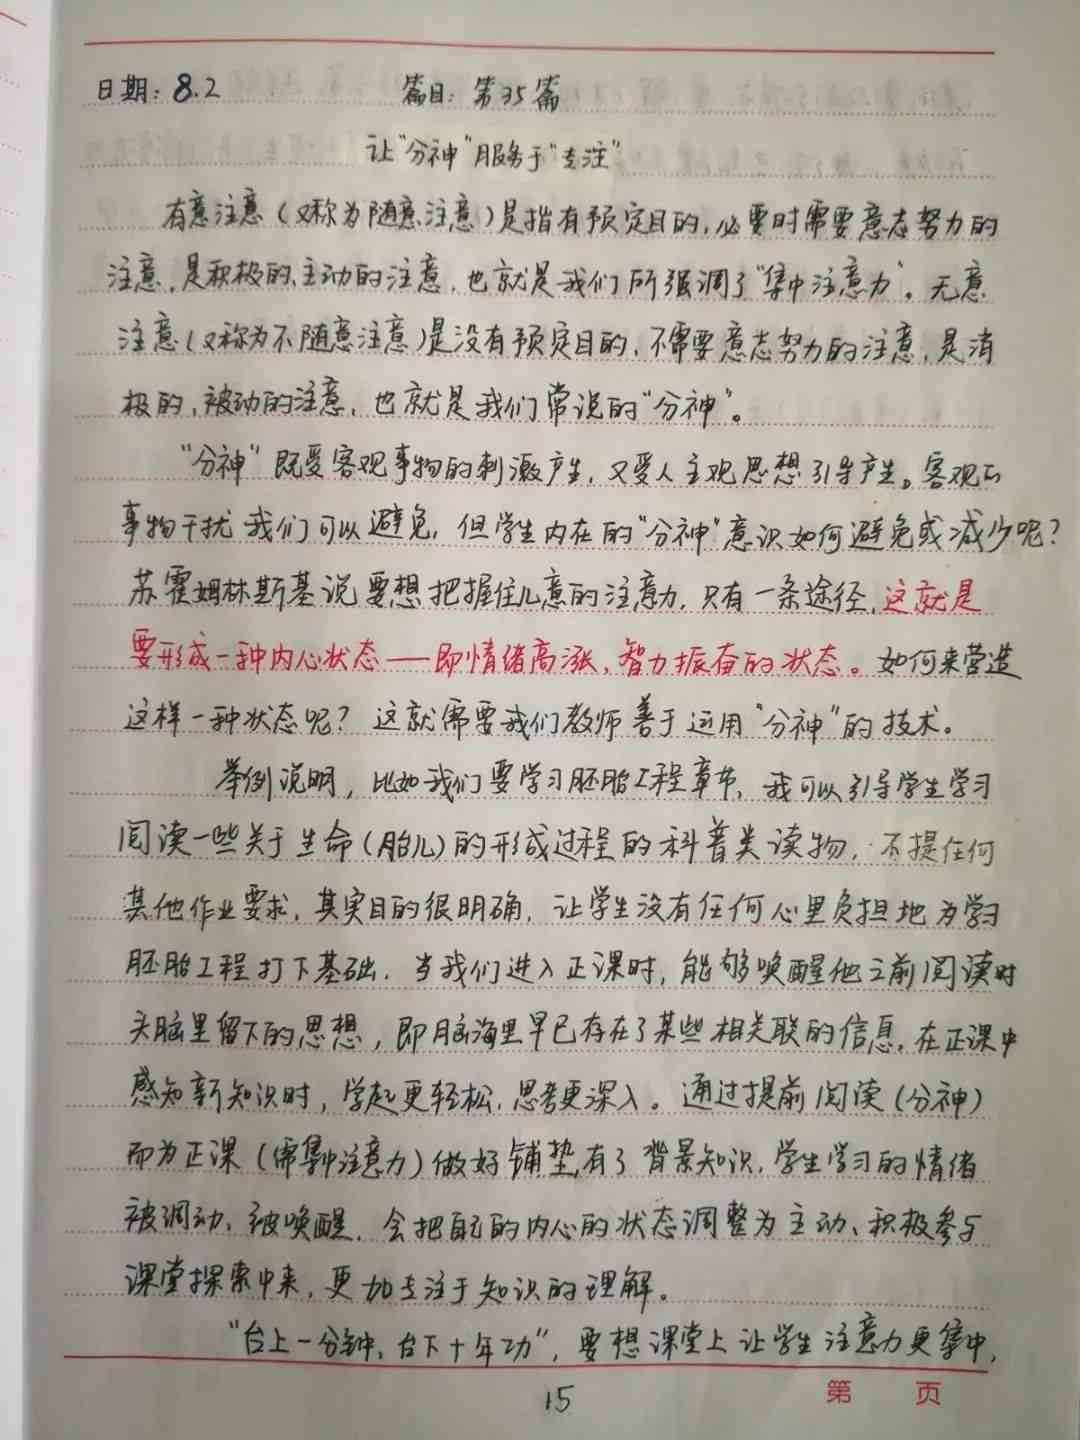 日期：8.2 篇目：第35篇
让“分神”服务于“专注”
有意注意（又称为随意注意）是指有预定目的，必要时需要意志努力的
注意，是积极的、主动的注意，也就是我们所强调了“集中注意力”。无意
注意（又称为不随意注意）是没有预定目的，不需要意志努力的注意，是消
极的，被动的注意，也就是我们常说的“分神”。
“分神”既受客观事物的刺激产生，又受人主观思想引导产生。客观的
事物干扰我们可以避免，但学生内在的“分神”意识如何避免或减少呢？
苏霍姆林斯基说要想把握住儿意的注意力，只有一条途径，这就是
要形成一种内心状态——即情绪高涨，智力振奋的状态。如何来营造
这样一种状态呢？这就需要我们教师善于运用“分神”的技术。
举例说明，比如我们要学习胚胎工程章节，我可以引导学生学习
阅读一些关于生命（胎儿）的形成过程的科普类读物，不提任何
其他作业要求，其实目的很明确，让学生没有任何心里负担地为学习
胚胎工程打下基础。当我们进入正课时，能够唤醒他之前阅读时
头脑里留下的思想，即脑海里早已存在了某些相关联的信息，在正课中
感知新知识时，学起更轻松，思考更深入。通过提前阅读（分神）
而为正课（需集中注意力）做好铺垫，有了背景知识，学生学习的情绪
被调动、被唤醒，会把自己的内心的状态调整为主动、积极参与
课堂探索中来，更加专注于知识的理解。
“台上一分钟，台下十年功”，要想课堂上让学生注意力更集中，
15
第 页